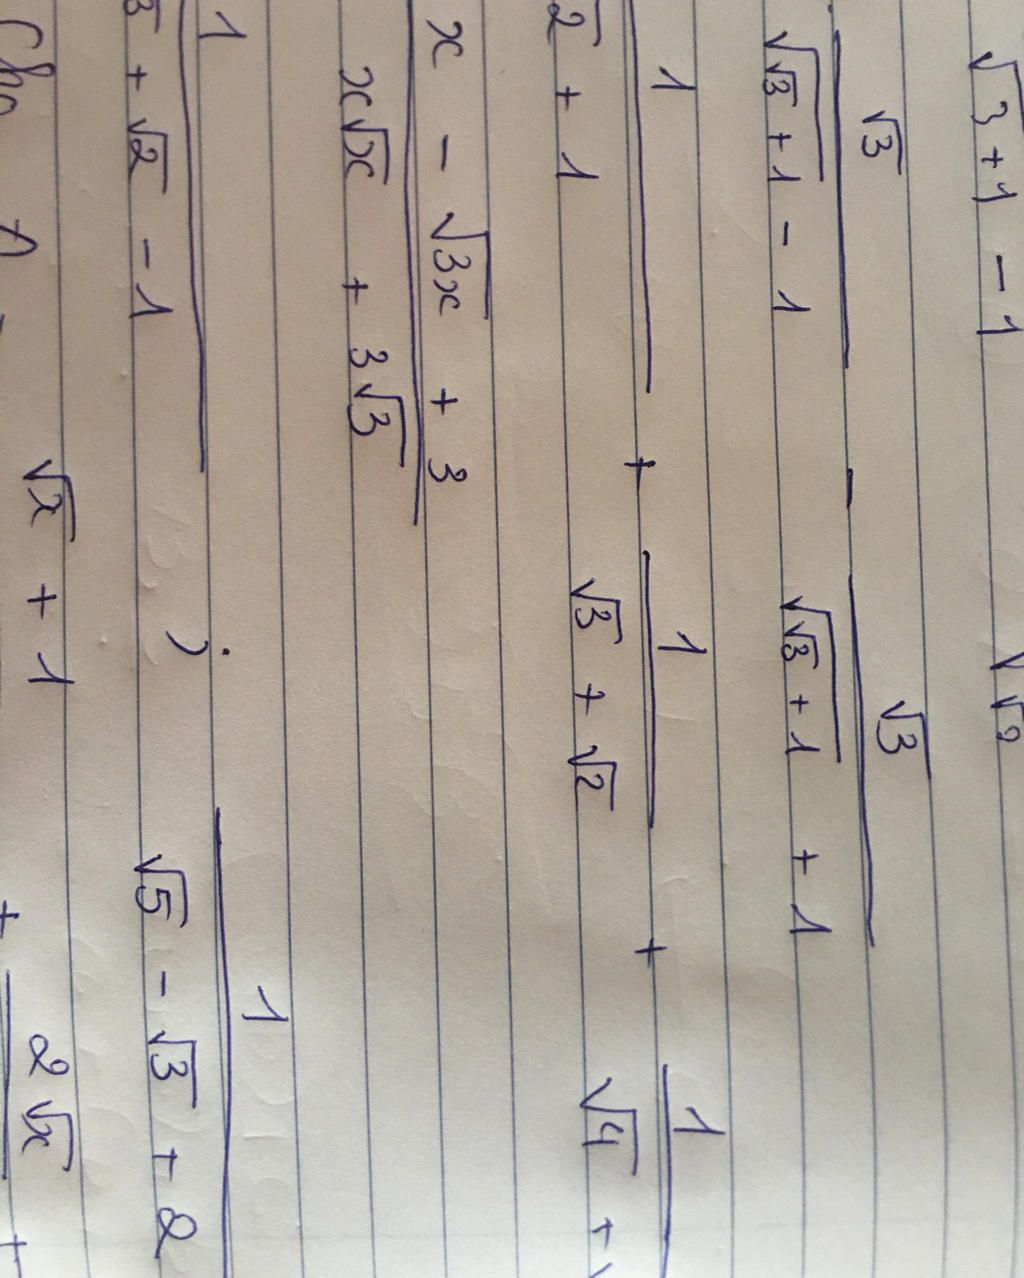 √3 + 1 - 1
√3 / (√(√3 + 1) - 1) - √3 / (√(√3 + 1) + 1)
1 / (√2 + 1) + 1 / (√3 + √2) + 1 / (√4 +
(x - √3x + 3) / (x√x + 3√3)
1 / (√3 + √2 - 1) ; 1 / (√5 - √3 + 2
Cho √x + 1 + 2√x +